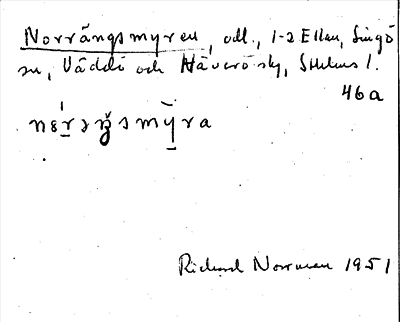 Norrängsmyren, odl., 1-2 Ellan, Singö
sn, Väddö och Häverö skg, Sthlms l.
46a
Richard Norrman 1951